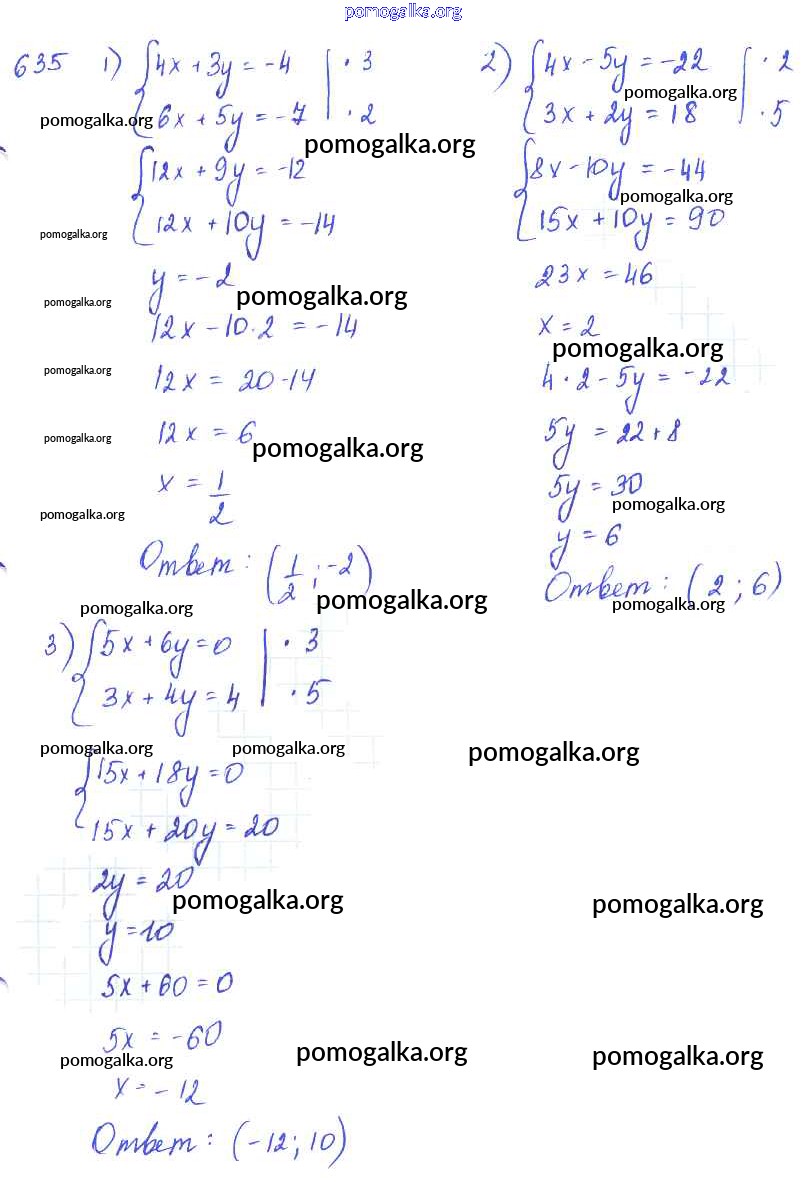 pomogalka.org
635 1) {4x + 3y = -4 | · 3
6x + 5y = -7 | · 2
pomogalka.org
pomogalka.org
{12x + 9y = -12
12x + 10y = -14
pomogalka.org
y = -2
pomogalka.org
pomogalka.org
12x - 10·2 = -14
pomogalka.org
12x = 20-14
pomogalka.org
12x = 6
pomogalka.org
x = 1/2
pomogalka.org
Ответ: (1/2; -2)
pomogalka.org
2) {4x - 5y = -22 | · 2
pomogalka.org
3x + 2y = 18 | · 5
{8x - 10y = -44
pomogalka.org
15x + 10y = 90
23x = 46
x = 2
pomogalka.org
4 · 2 - 5y = -22
5y = 22 + 8
5y = 30
pomogalka.org
y = 6
Ответ: (2; 6)
pomogalka.org
pomogalka.org
3) {5x + 6y = 0 | · 3
3x + 4y = 4 | · 5
pomogalka.org pomogalka.org pomogalka.org
{15x + 18y = 0
15x + 20y = 20
2y = 20
pomogalka.org pomogalka.org
y = 10
5x + 60 = 0
5x = -60
pomogalka.org pomogalka.org pomogalka.org
x = -12
Ответ: (-12; 10)